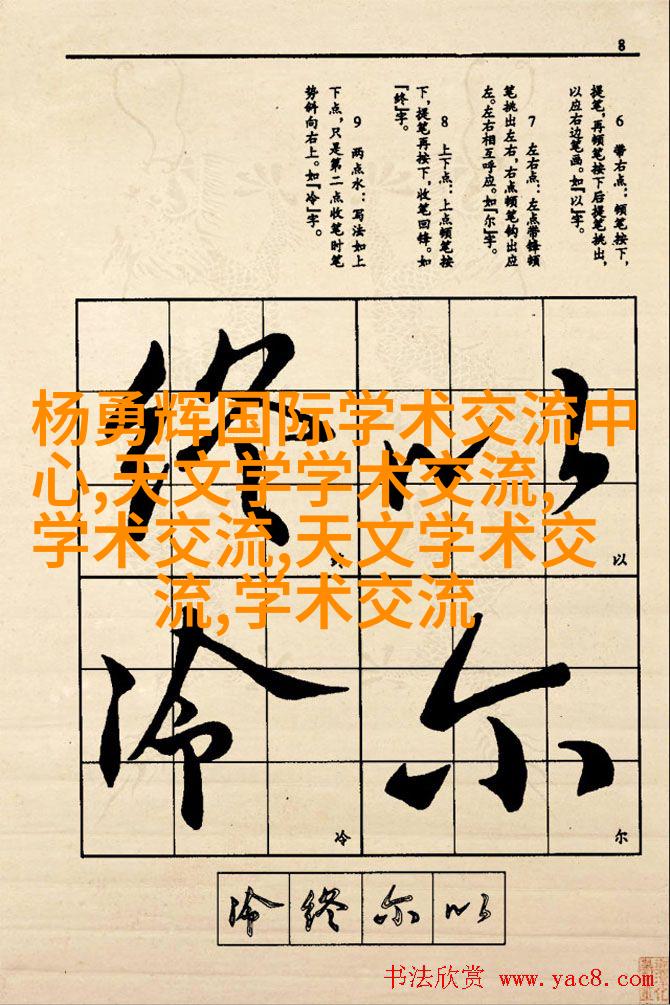 8
6 带右点：顿笔按下，
提笔，再顿笔按下后提笔挑出，
以应右边笔画。如『以』字。
7 左右点：左点带锋顿
笔挑出左右，右点顿笔钩出应
左。左右相互呼应。如『尔』字。
8 上下点：上点顿笔按
下，提笔再按下，收笔回锋。如
『终』字。
9 两点水：写法如上
下点，只是第二点收笔时笔
势斜向右上。如『冷』字。
杨勇辉国际学术交流中
心,天文学学术交流,
学术交流,天文学术交
流,学术交流
终 以
以
冷 尔
冷 尔
冷 终 尔 以
书法欣赏 www.yac8.com